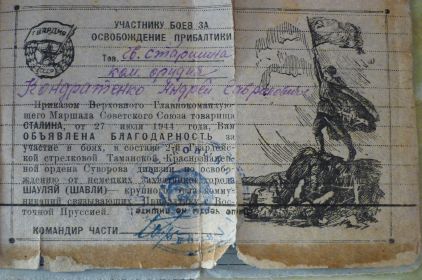 ГВАРДИЯ
СССР
УЧАСТНИКУ БОЕВ ЗА
ОСВОБОЖДЕНИЕ ПРИБАЛТИКИ
Тов. гв. старшина
ком. орудия
Кондратенко Андрей
Приказом Верховного Главнокомандую-
щего Маршала Советского Союза товарища
СТАЛИНА, от 27 июля 1944 года, Вам
ОБЪЯВЛЕНА БЛАГОДАРНОСТЬ за
участие в боях, в составе 2-й Гвардейс
стрелковой Таманской, Краснознамен
ной ордена Суворова дивизии по освобож-
дению от немецких захватчиков города
ШАУЛЯЙ (ШАВЛИ) — крупного
никаций связывающих с Вос-
точной Пруссией.
КОМАНДИР ЧАСТИ